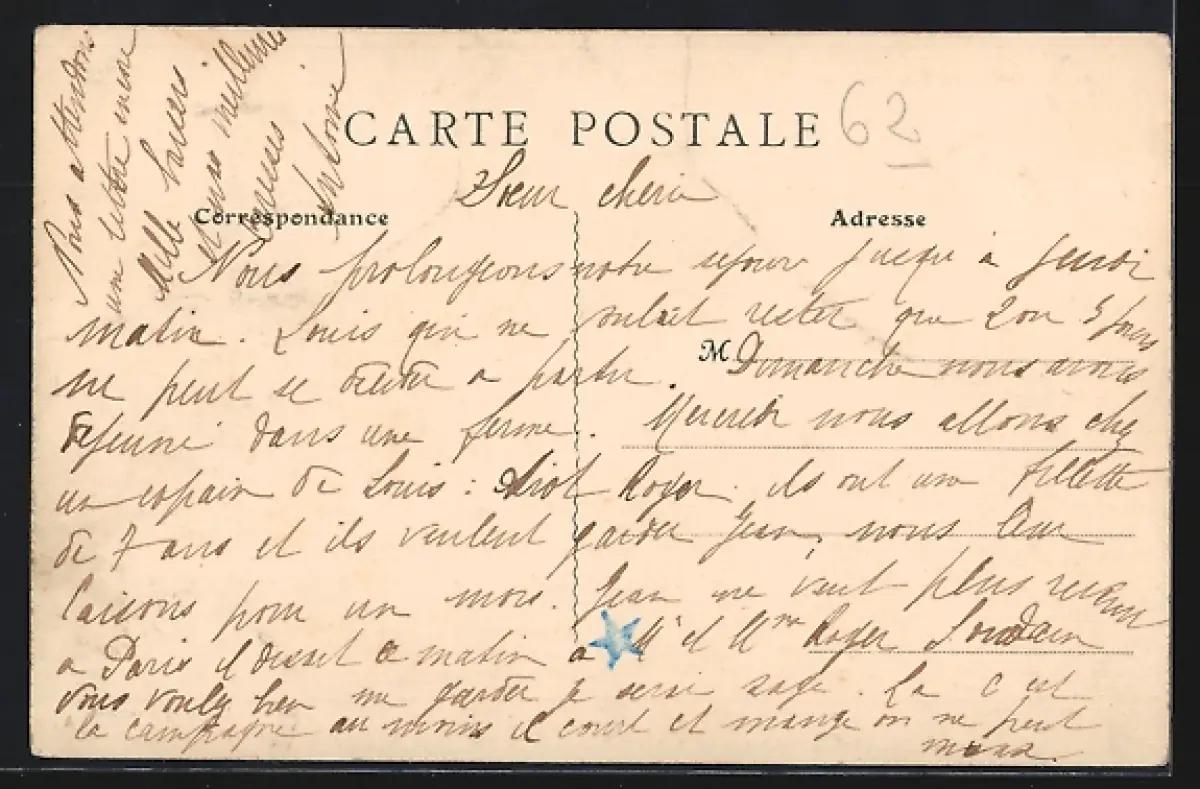 CARTE POSTALE
62
Sœur cherie
Correspondance
Adresse
Nous prolongeons notre sejour jusqu'a jeudi
matin. Louis qui ne voulait rester que 2 ou 3 jours
ne peut se decider a partir. M. Dimanche nous avons
dejeuné dans une ferme. Mercredi nous allons chez
un copain de Louis : Roger. ils ont une fillette
de 7 ans et ils veulent garder Jean, nous leur
laisons pour un mois. Jean ne veut plus revenir
a Paris il disait ce matin a Mr et Mme Roger
vous voulez bien me garder je serai sage. La c'est
la campagne au moins il court et mange on ne peut
mieux.
Nous attendons
une lettre
Mille baisers
et mes meilleures
Antoine